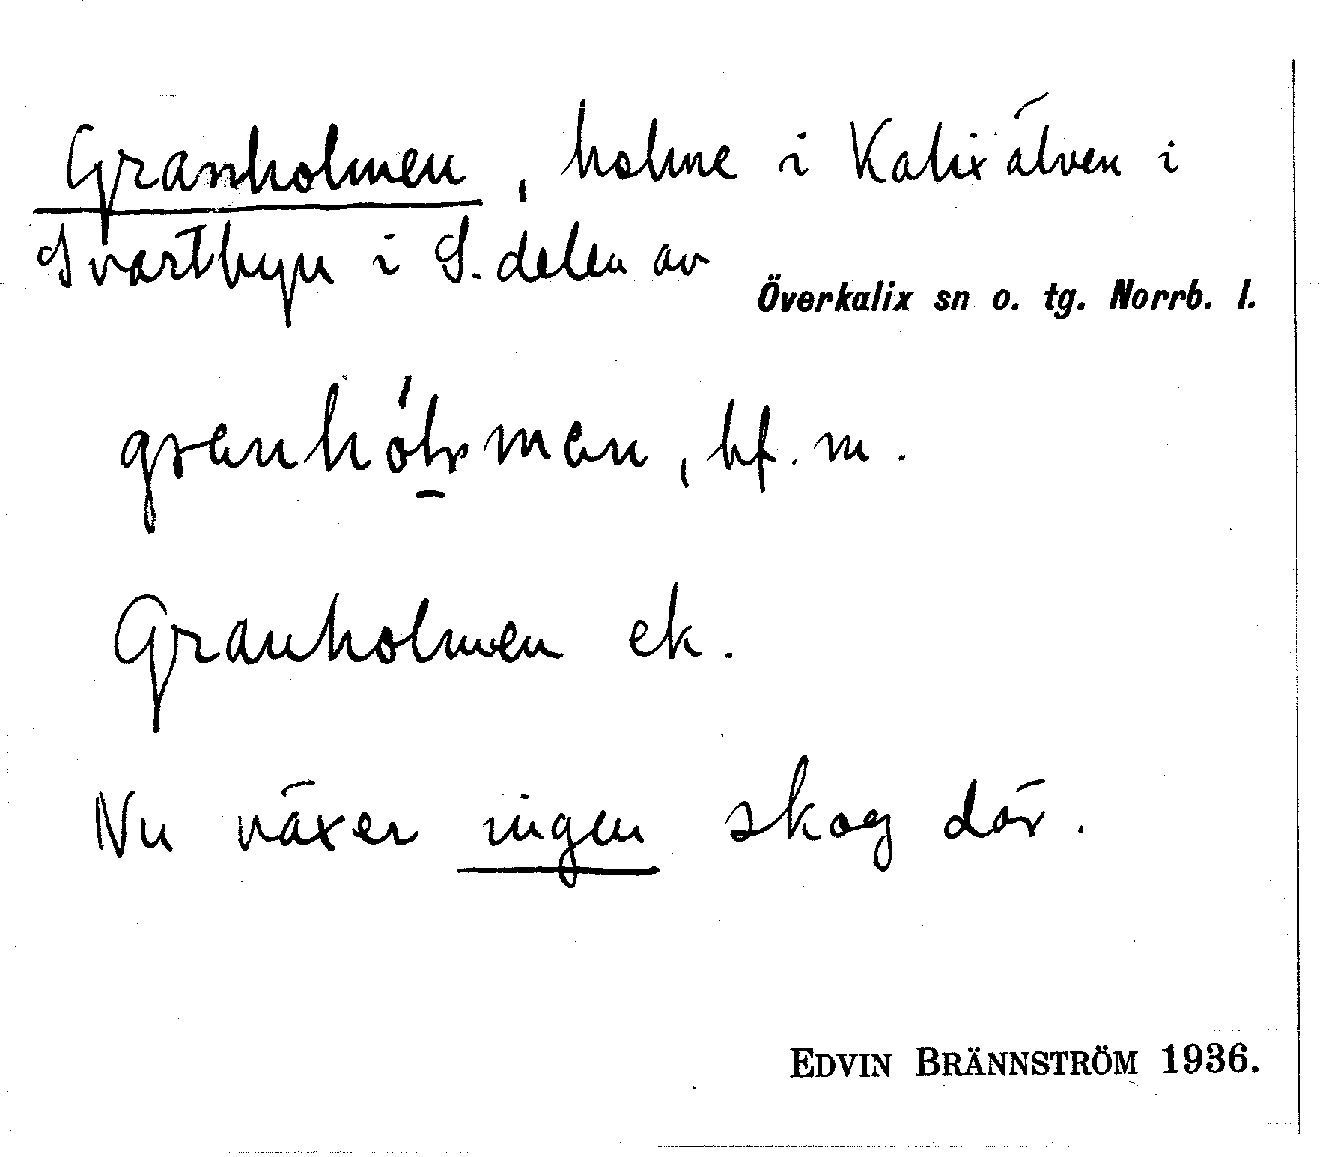 Granholmen, holme i Kalixälven i
Svartbyn i S. delen av
Överkalix sn o. tg. Norrb. l.
granhólman, bf. m.
Granholmen ek.
Nu växer ingen skog där.
EDVIN BRÄNNSTRÖM 1936.